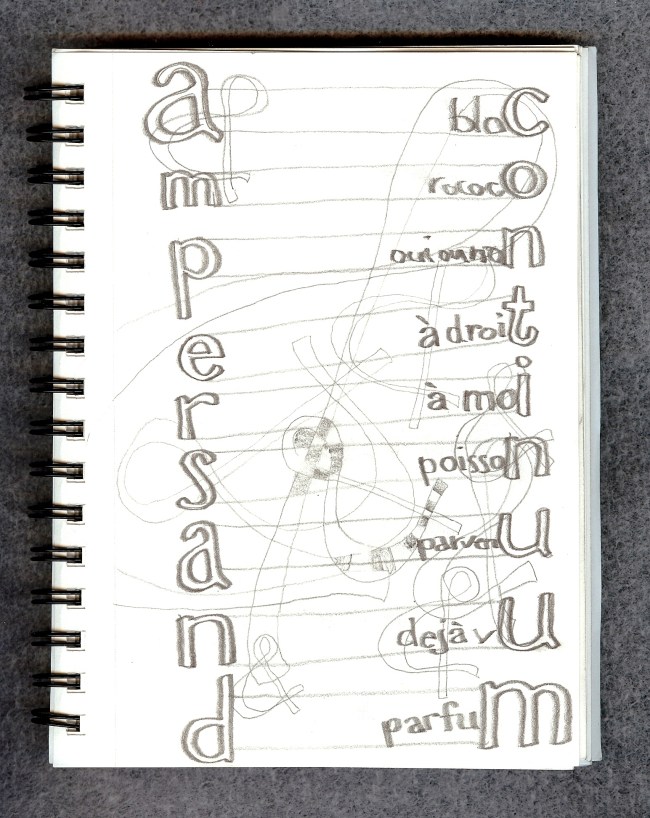 ampersand
bloc
rococo
oui ou non
à droit
à moi
poisson
parvenu
dejà vu
parfum